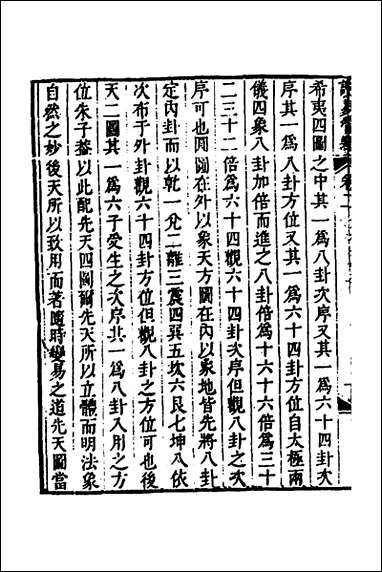 希夷四圖之中其一爲八卦次序又其一爲六十四卦次
序其一爲八卦方位又其一爲六十四卦方位自太極兩
儀四象八卦加倍而進之八卦倍爲十六十六倍爲三十
二三十二倍爲六十四觀六十四卦次序但觀八卦之次
序可也圓圖在外以象天方圖在內以象地皆先將八卦
定內卦而以乾一兊二離三震四巽五坎六艮七坤八依
次布于外卦觀六十四卦方位但觀八卦之方位可也後
天二圖其一爲六子受生之次序其一爲八卦入用之方
位朱子葢以此配先天四圖爾先天所以立體而明法象
自然之妙後天所以致用而著隨時變易之道先天圖當